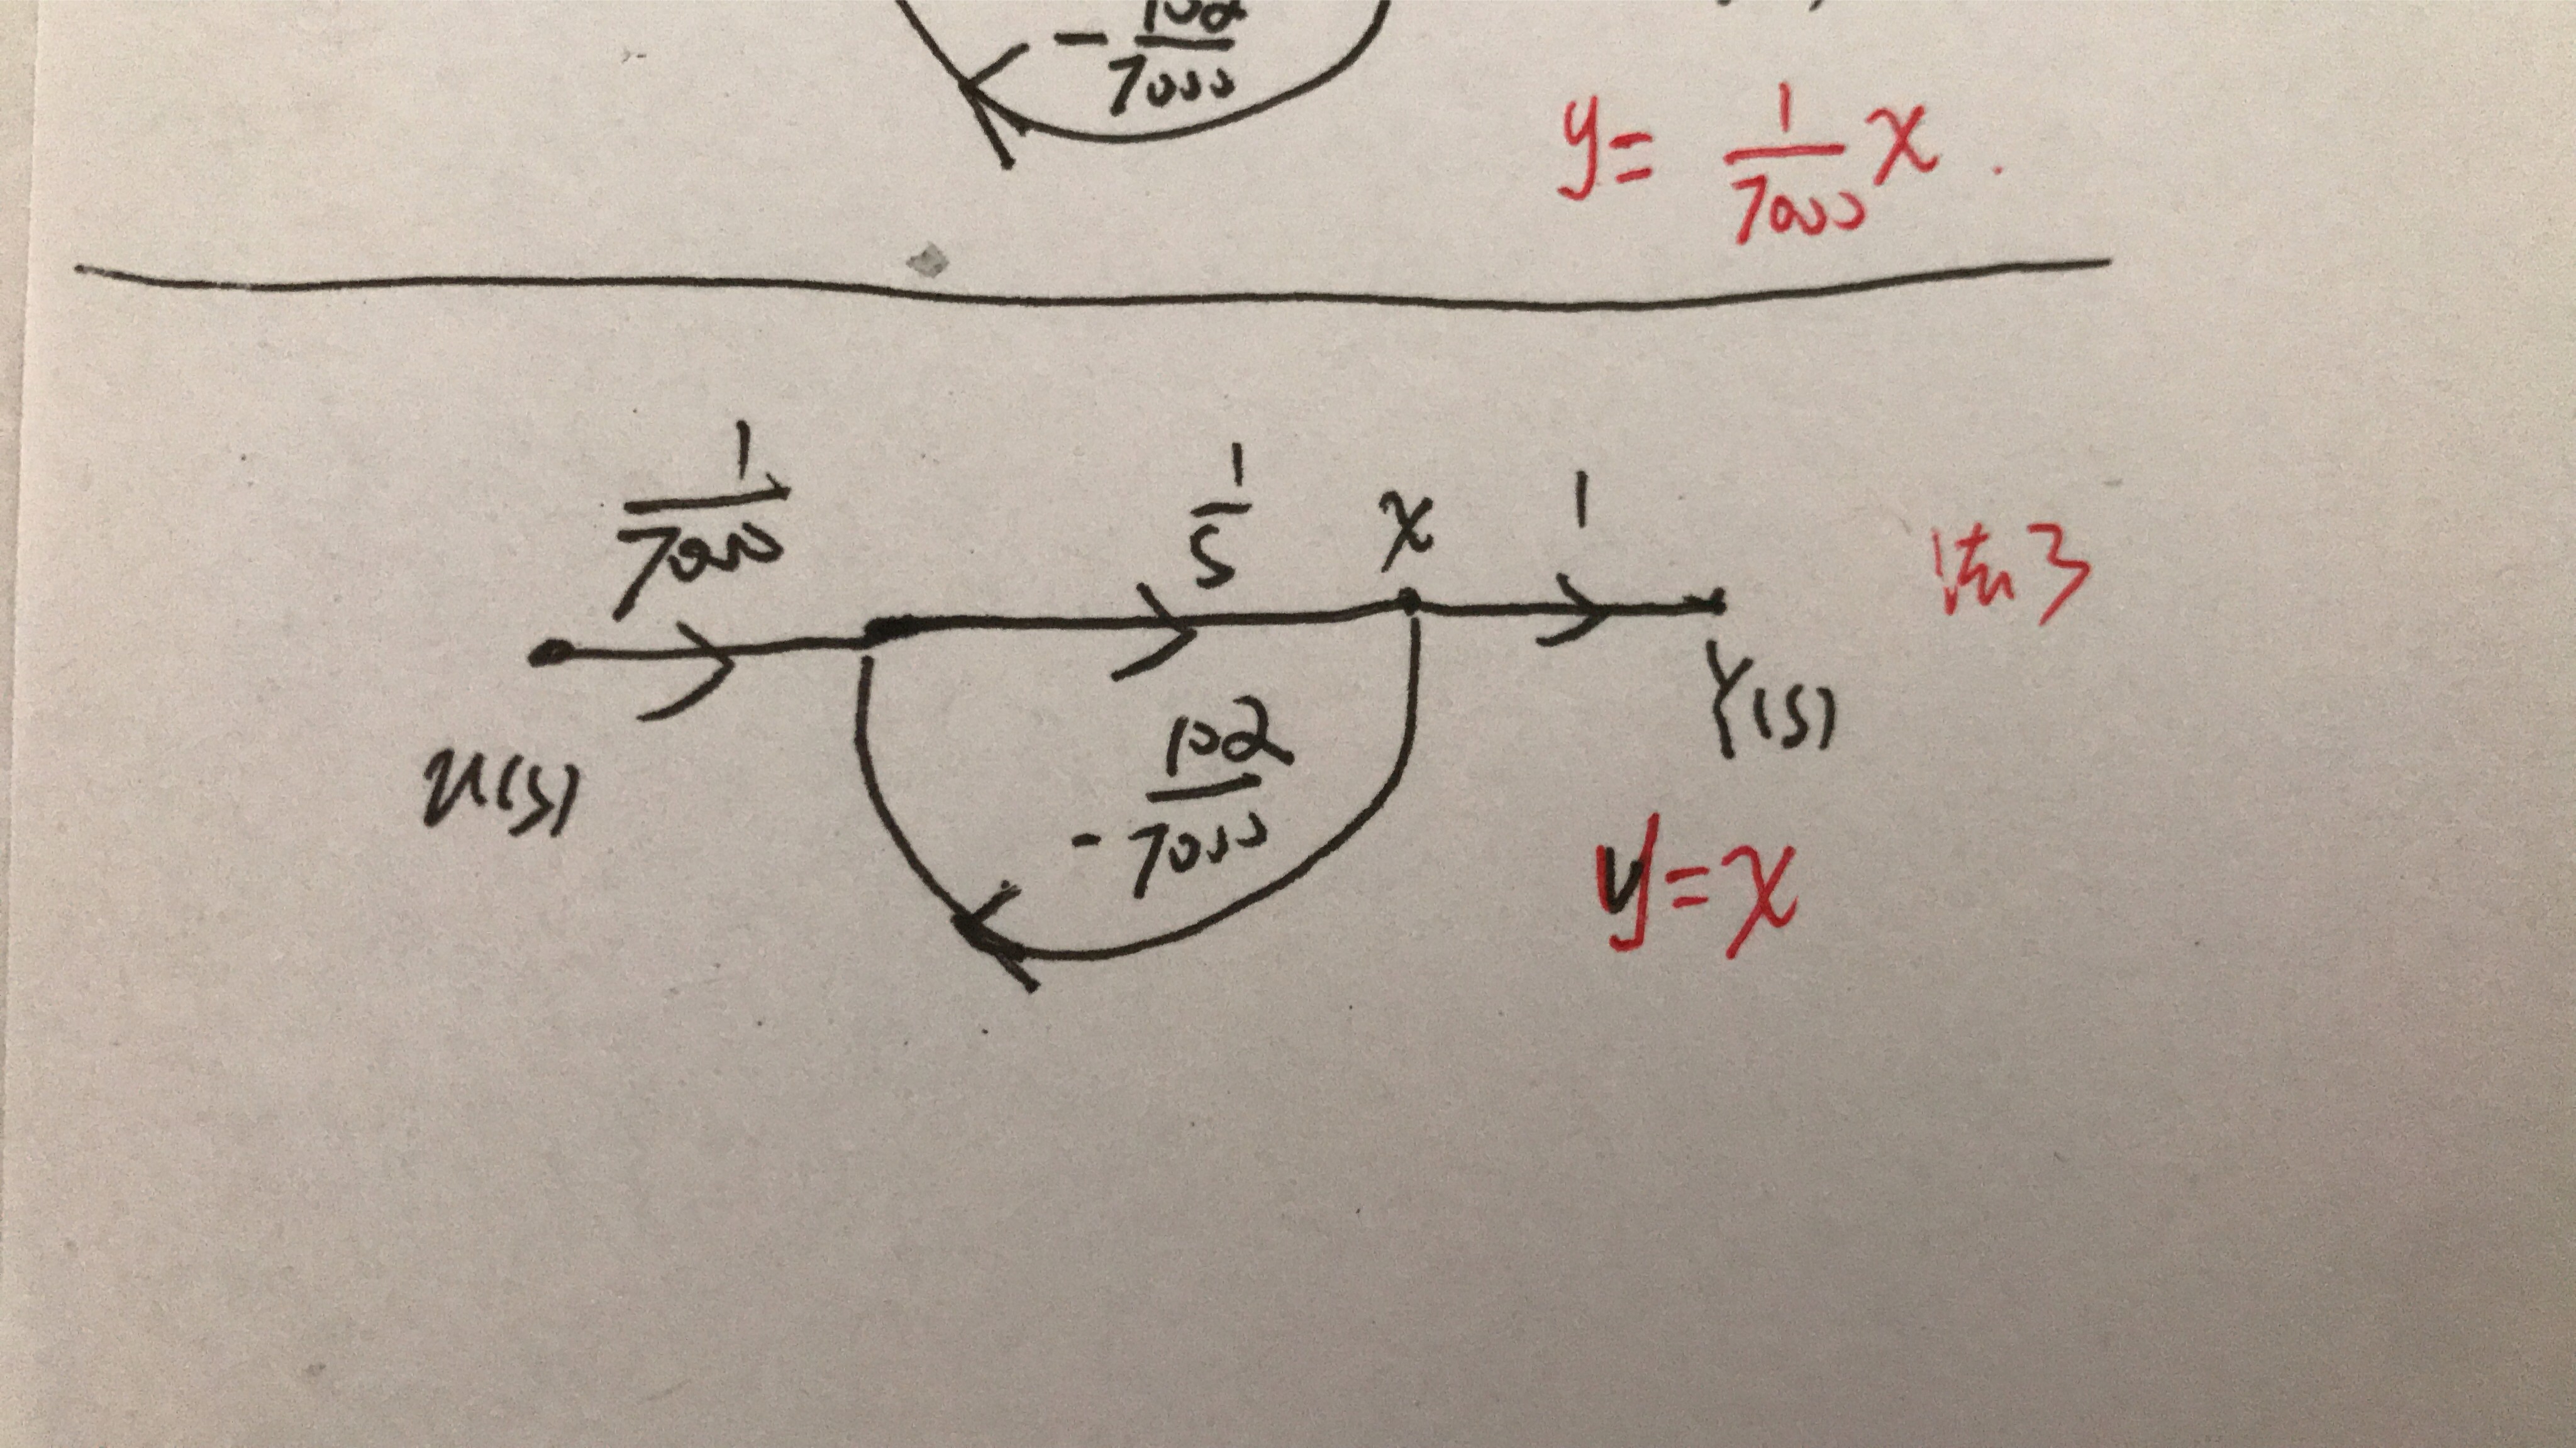 - 102/7000
y = 1/7000 x .
1/7000
1/s
x
1
法3
U(s)
Y(s)
- 102/7000
y = x